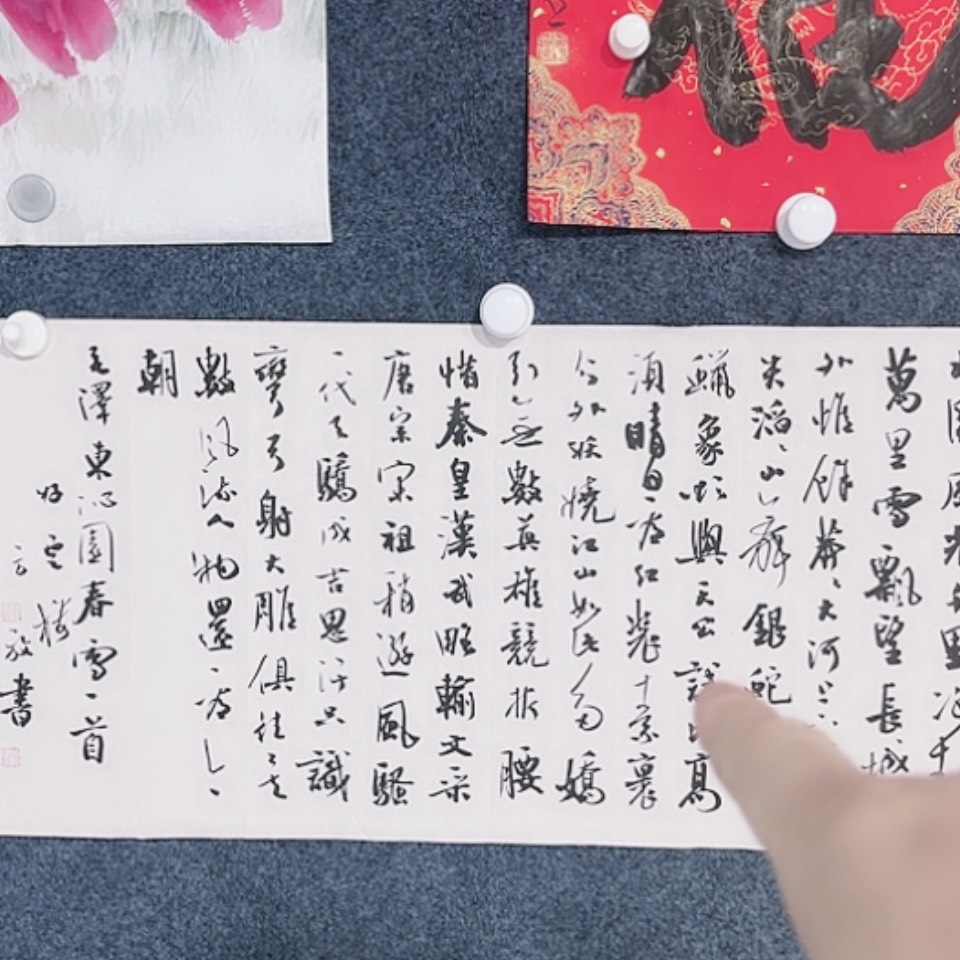 國風光千里冰
萬里雪飄望長城
外惟餘莽〻大河上
失滔〻山舞銀蛇
蠟象欲與天公試比高
須晴日看紅裝素裹
分外妖嬈江山如此多嬌
引無數英雄競折腰
惜秦皇漢武略輸文采
唐宗宋祖稍遜風騷
一代天驕成吉思汗只識
彎弓射大雕俱往矣
數風流人物還看今
朝
毛澤東沁園春雪一首
書